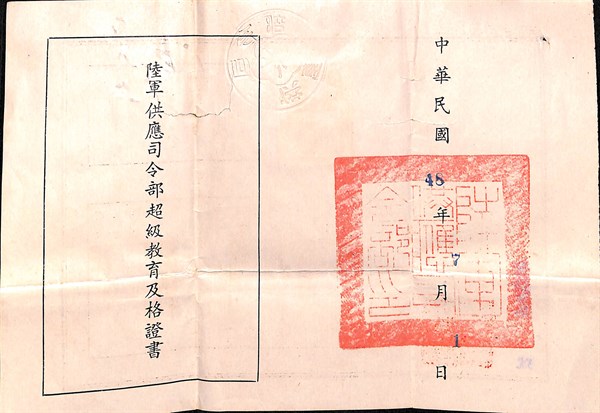 中華民國48年7月1日
陸軍供應司令部超級教育及格證書